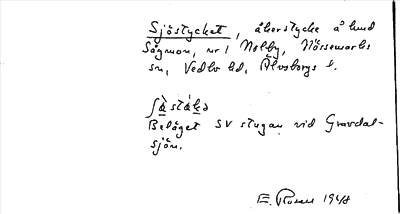 Sjöstycket, åkerstycke å hmd
Sågmon, nr 1 Nolby, Nössemarks
sn, Vedbo hd, Älvsborgs l.
Beläget SV stugan vid Gravdal-
sjön.
E. Rosén 1948